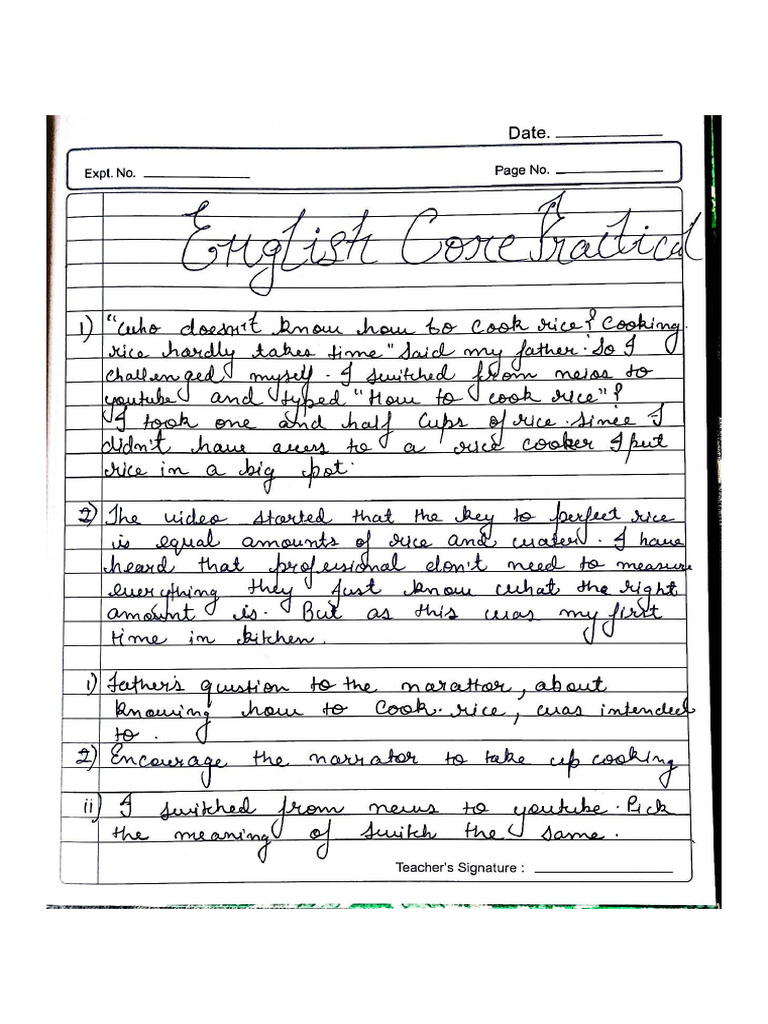 Date.
Expt. No.
Page No.
English Core Practical
1) "Who doesn't know how to cook rice? Cooking
rice hardly takes time" Said my father. So I
challenged myself. I switched from news to
youtube and typed "How to cook rice"?
I took one and half cups of rice. since I
didn't have acess to a rice cooker I put
rice in a big pot.
2) The video started that the key to perfect rice
is equal amounts of rice and water. I have
heard that professional don't need to measure
everything they just know what the right
amount is. But as this was my first
time in kitchen.
1) Father's question to the narattor, about
knowing how to cook rice, was intended
to.
2) Encourage the narrator to take up cooking
ii) I switched from news to youtube. Pick
the meaning of switch the same.
Teacher's Signature :